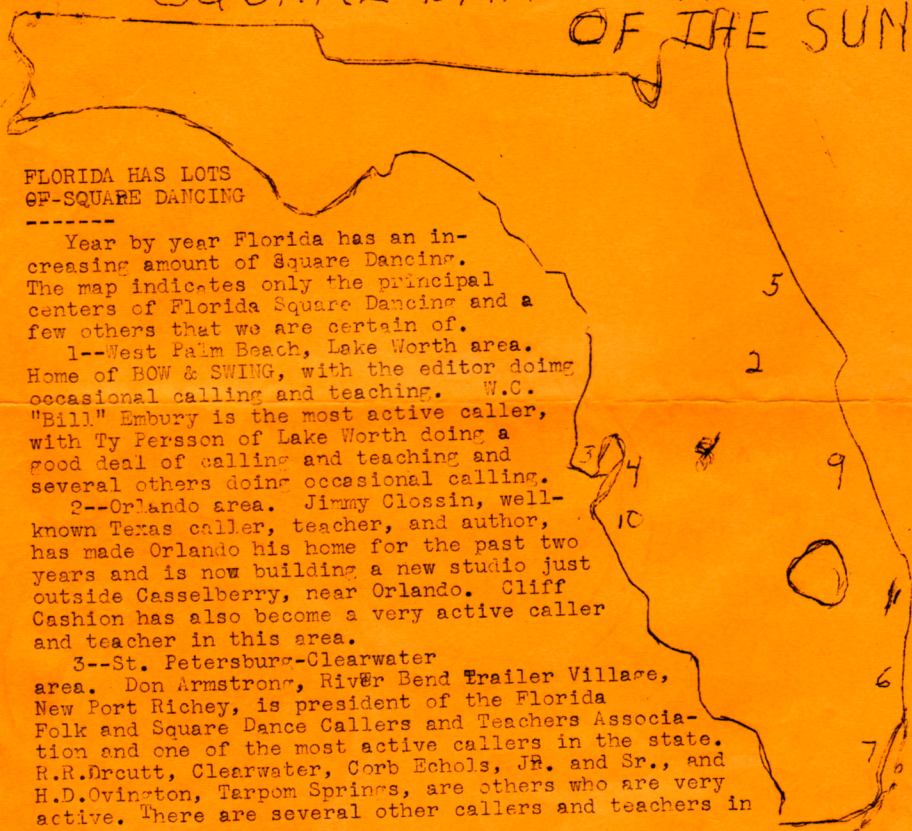 OF THE SUN
FLORIDA HAS LOTS
OF-SQUARE DANCING
-------
Year by year Florida has an in-
creasing amount of Square Dancing.
The map indicates only the principal
centers of Florida Square Dancing and a
few others that we are certain of.
1--West Palm Beach, Lake Worth area.
Home of BOW & SWING, with the editor doimg
occasional calling and teaching. W.C.
"Bill" Embury is the most active caller,
with Ty Persson of Lake Worth doing a
good deal of calling and teaching and
several others doing occasional calling.
2--Orlando area. Jimmy Clossin, well-
known Texas caller, teacher, and author,
has made Orlando his home for the past two
years and is now building a new studio just
outside Casselberry, near Orlando. Cliff
Cashion has also become a very active caller
and teacher in this area.
3--St. Petersburg-Clearwater
area. Don Armstrong, River Bend Trailer Village,
New Port Richey, is president of the Florida
Folk and Square Dance Callers and Teachers Associa-
tion and one of the most active callers in the state.
R.R.Drcutt, Clearwater, Corb Echols, JR. and Sr., and
H.D.Ovington, Tarpom Springs, are others who are very
active. There are several other callers and teachers in
5
2
3
4
9
10
6
7